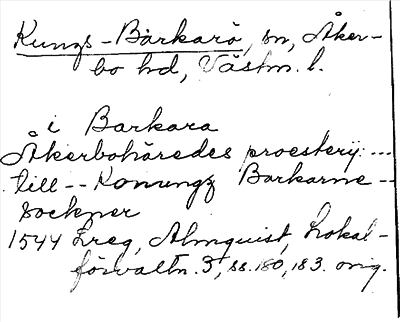 Kungs-Barkarö, sn, Åker-
bo hd, Västm. l.
i Barkara
Åkerbohäredes proesterij ...
till -- Konungz Barkarne --
sockner
1544 Ereg, Almquist, Lokal-
förvaltn. 3, ss. 180, 183. orig.